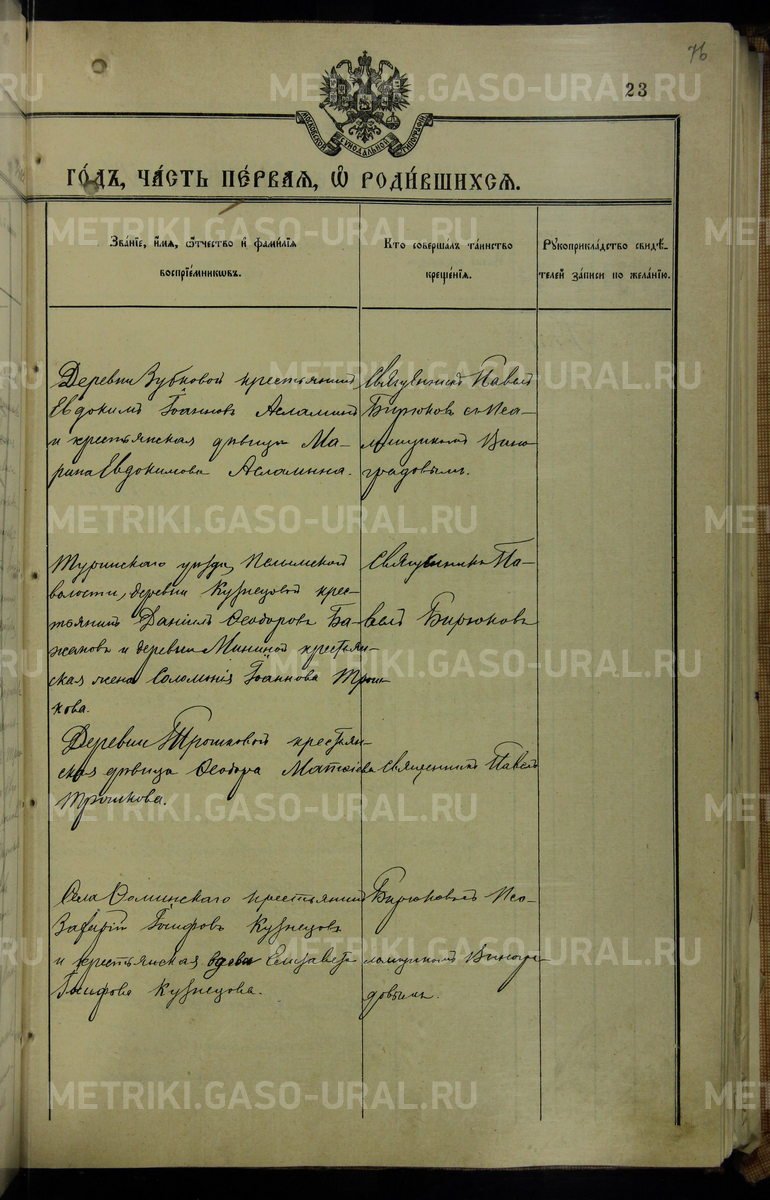 76
23
МОСКОВСКОЙ СУНОДАЛЬНОЙ ТИПОГРАФІИ
ГОДЪ, ЧАСТЬ ПЕРВАЯ, Ѡ РОДИВШИХСЯ.
Званіе, имя, отчество и фамилія
воспріемниковъ.
Кто совершалъ таинство
крещенія.
Рукоприкладство свидѣ-
телей записи по желанію.
Деревни Зубковой крестьянинъ
Евдокимъ Іоанновъ Асламинъ
и крестьянская дѣвица Ма-
рина Евдокимова Асламина.
Священникъ Павелъ
Бирюковъ съ пса-
ломщикомъ Вино-
градовымъ.
Туринскаго уѣзда, Пелымской
волости, деревни Кузнецовой крес-
тьянинъ Даніилъ Ѳеодоровъ Ба-
жановъ и деревни Мининой крестьян-
ская жена Соломонія Іоаннова Трош-
кова.
Священникъ Па-
велъ Бирюковъ
Деревни Трошковой крестьян-
ская дѣвица Ѳеодора Матѳіева
Трошкова.
Священникъ Павелъ
Села крестьянинъ
Іосифовъ Кузнецовъ
и крестьянская вдова Елизавета
Іосифова Кузнецова.
Бирюковъ пса-
ломщикомъ Виногра-
довымъ.
METRIKI.GASO-URAL.RU